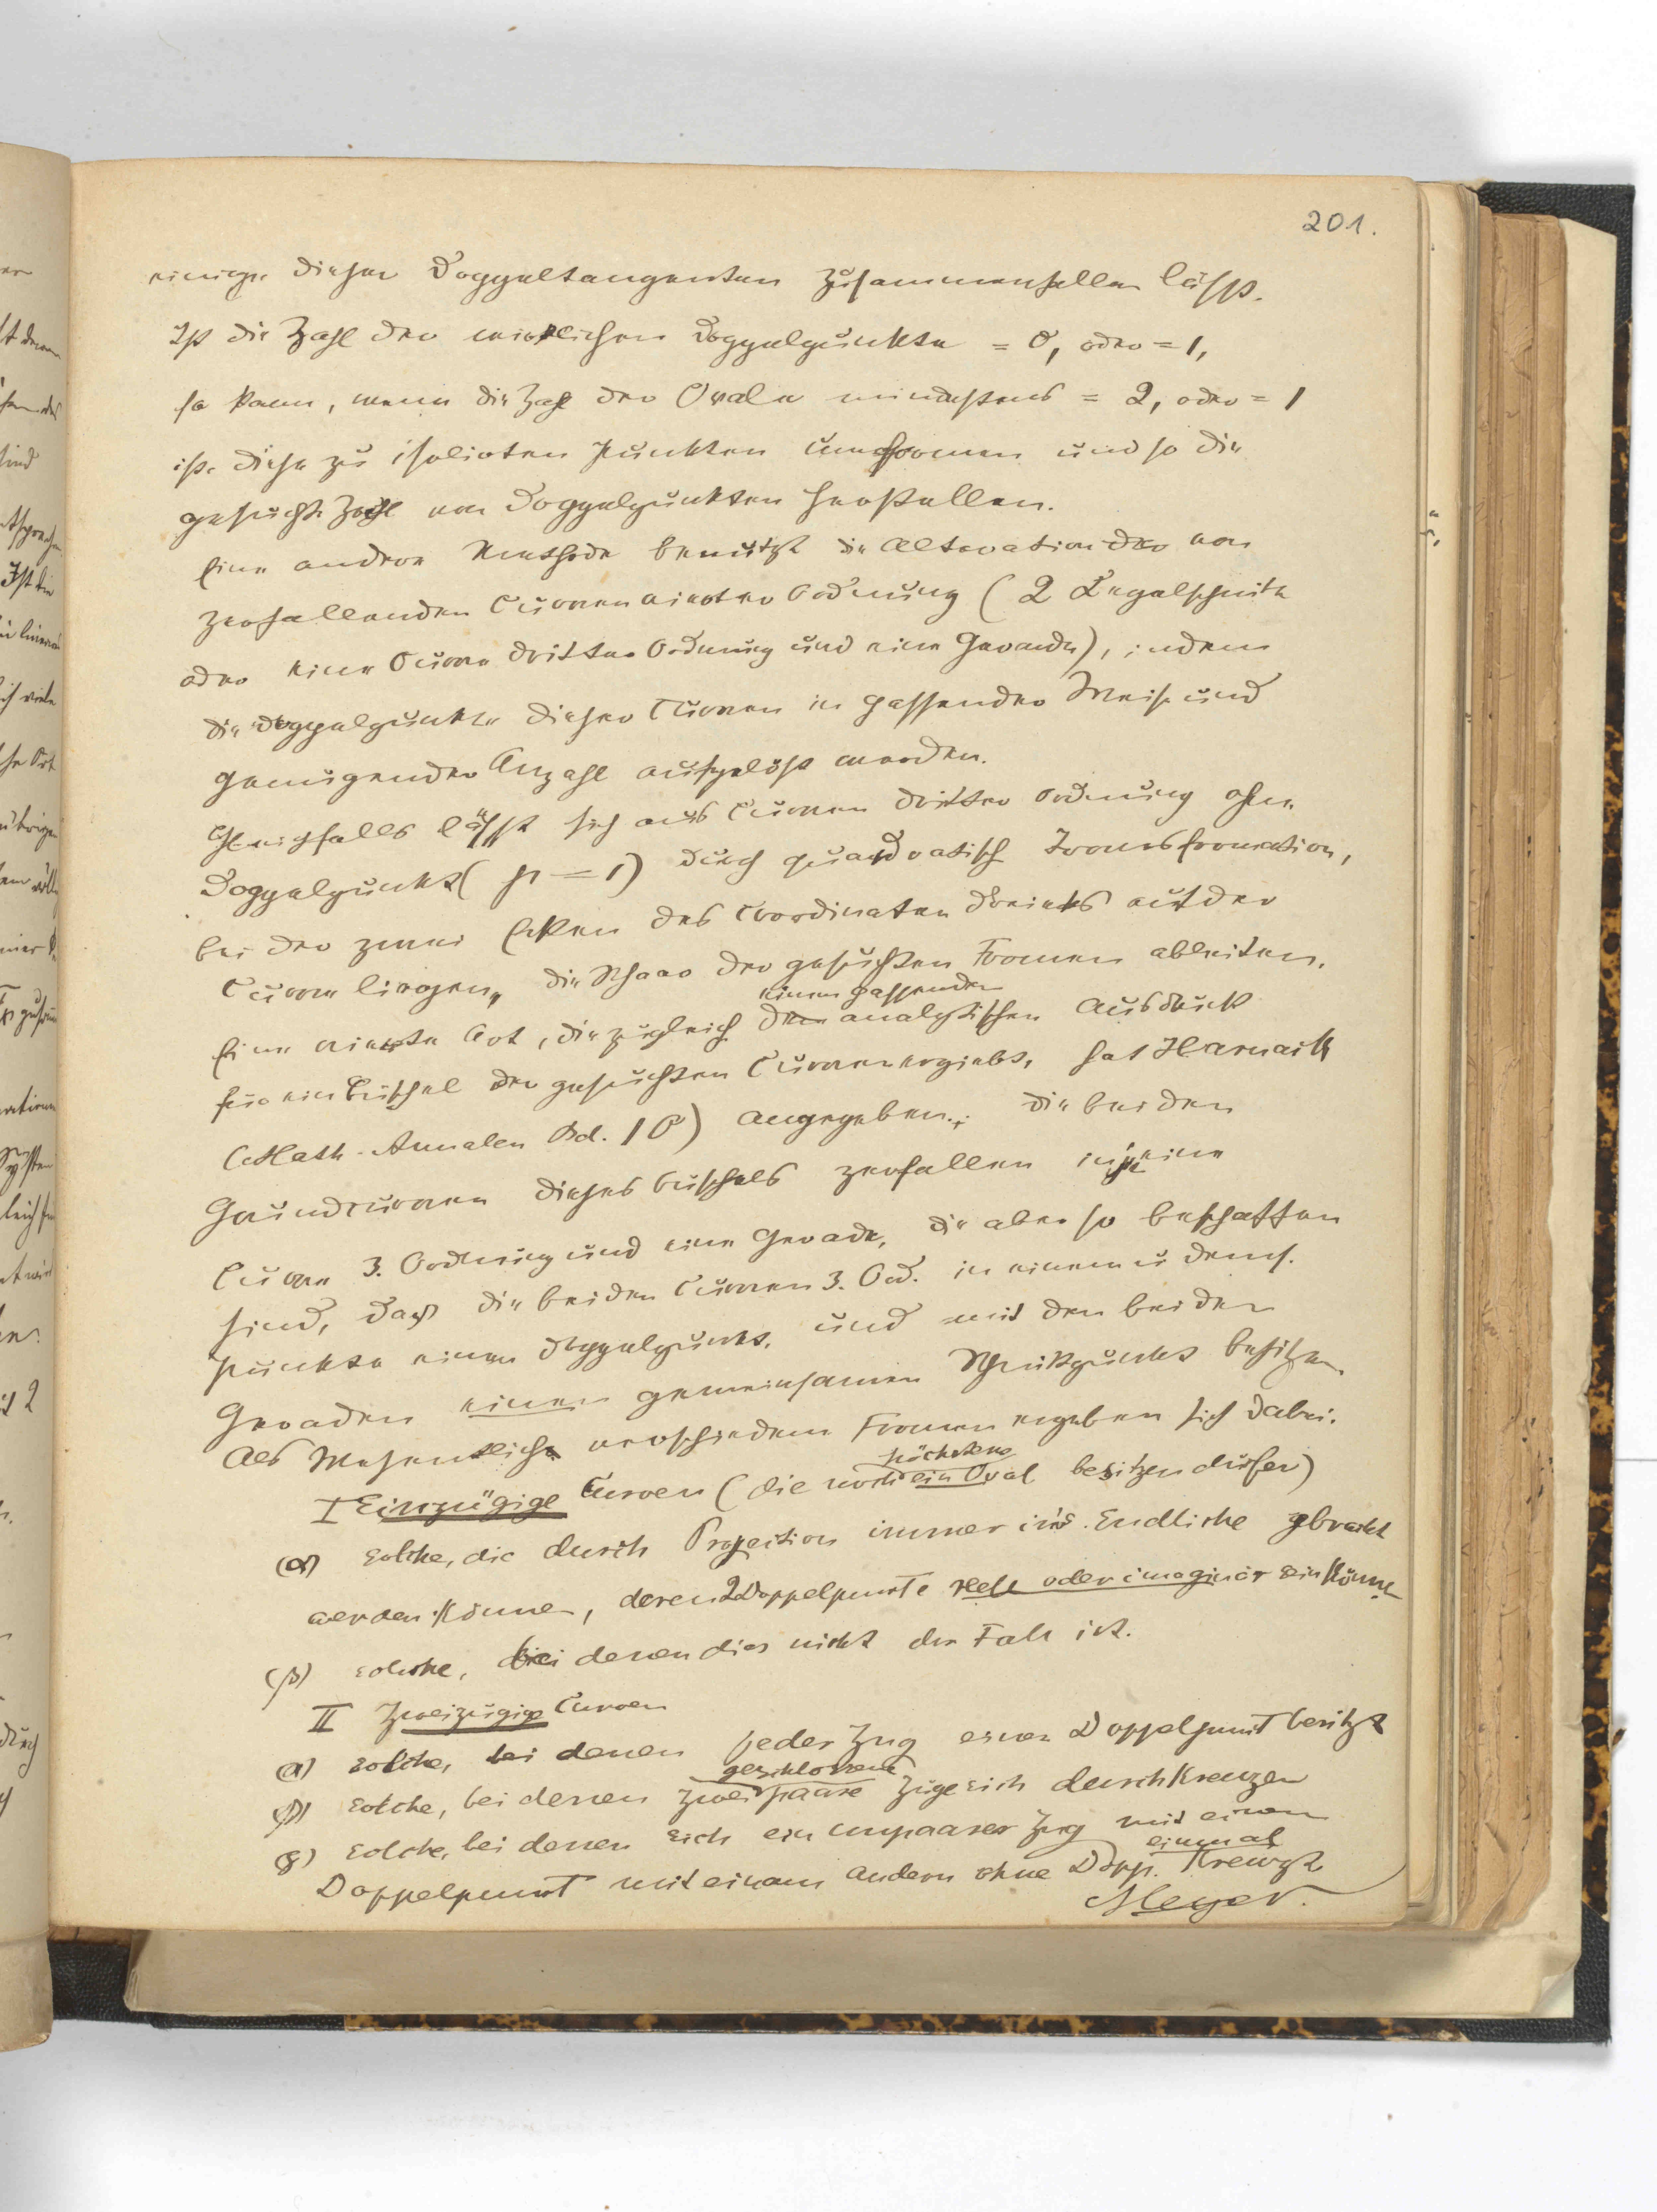 201.
einige dieser Doppeltangenten zusammenfallen lässt.
Ist die Zahl der wirklichen Doppelpunkte = 0, oder = 1,
so kann, wenn die Zahl der Ovale mindestens = 2, oder = 1
ist, diese zu isolirten Punkten umformen und so die
gesuchte Zahl von Doppelpunkten herstellen.
Eine andere Methode benutzt die Alteration der von
zerfallenden Curven vierter Ordnung (2 Kegelschnitte
oder eine Curve dritter Ordnung und eine Gerade), indem
die Doppelpunkte dieser Curven in passender Weise und
genügender Anzahl aufgelöst werden.
Gleichfalls lässt sich aus Curven dritter Ordnung ohne
Doppelpunkt (p = 1) durch quadratische Transformation,
bei der zwei Ecken des Coordinaten Dreiecks auf der
Curve liegen, die Schaar der gesuchten Formen ableiten.
Eine vierte Art, die zugleich einen passenden analytischen Ausdruck
für ein Büschel der gesuchten Curven ergiebt, hat Harnack
(Math. Annalen Bd. 10) angegeben; die beiden
Grundcurven dieses Büschels zerfallen in je eine
Curve 3. Ordnung und eine Gerade, die aber so beschaffen
sind, dass die beiden Curven 3. Ord. in einem u dems.
Punkte einen Doppelpunkt, und mit den beiden
Geraden einen gemeinsamen Schnittpunkt besitzen.
Als wesentlich verschiedene Formen ergeben sich dabei:
I Einzügige Curven (die noch höchstens ein Oval besitzen dürfen)
(α) solche, die durch Projection immer ins Endliche gebracht
werden können, deren 2 Doppelpunkte reell oder imaginär sein können
(β) solche, bei denen dies nicht der Fall ist.
II Zweizügige Curven
α) solche, bei denen jeder Zug einen Doppelpunkt besitzt
β) solche, bei denen zwei geschlossene paare Züge sich durchkreuzen
γ) solche, bei denen sich ein unpaarer Zug mit einem
Doppelpunkt mit einem andern ohne Dopp. einmal kreuzt
Meyer.